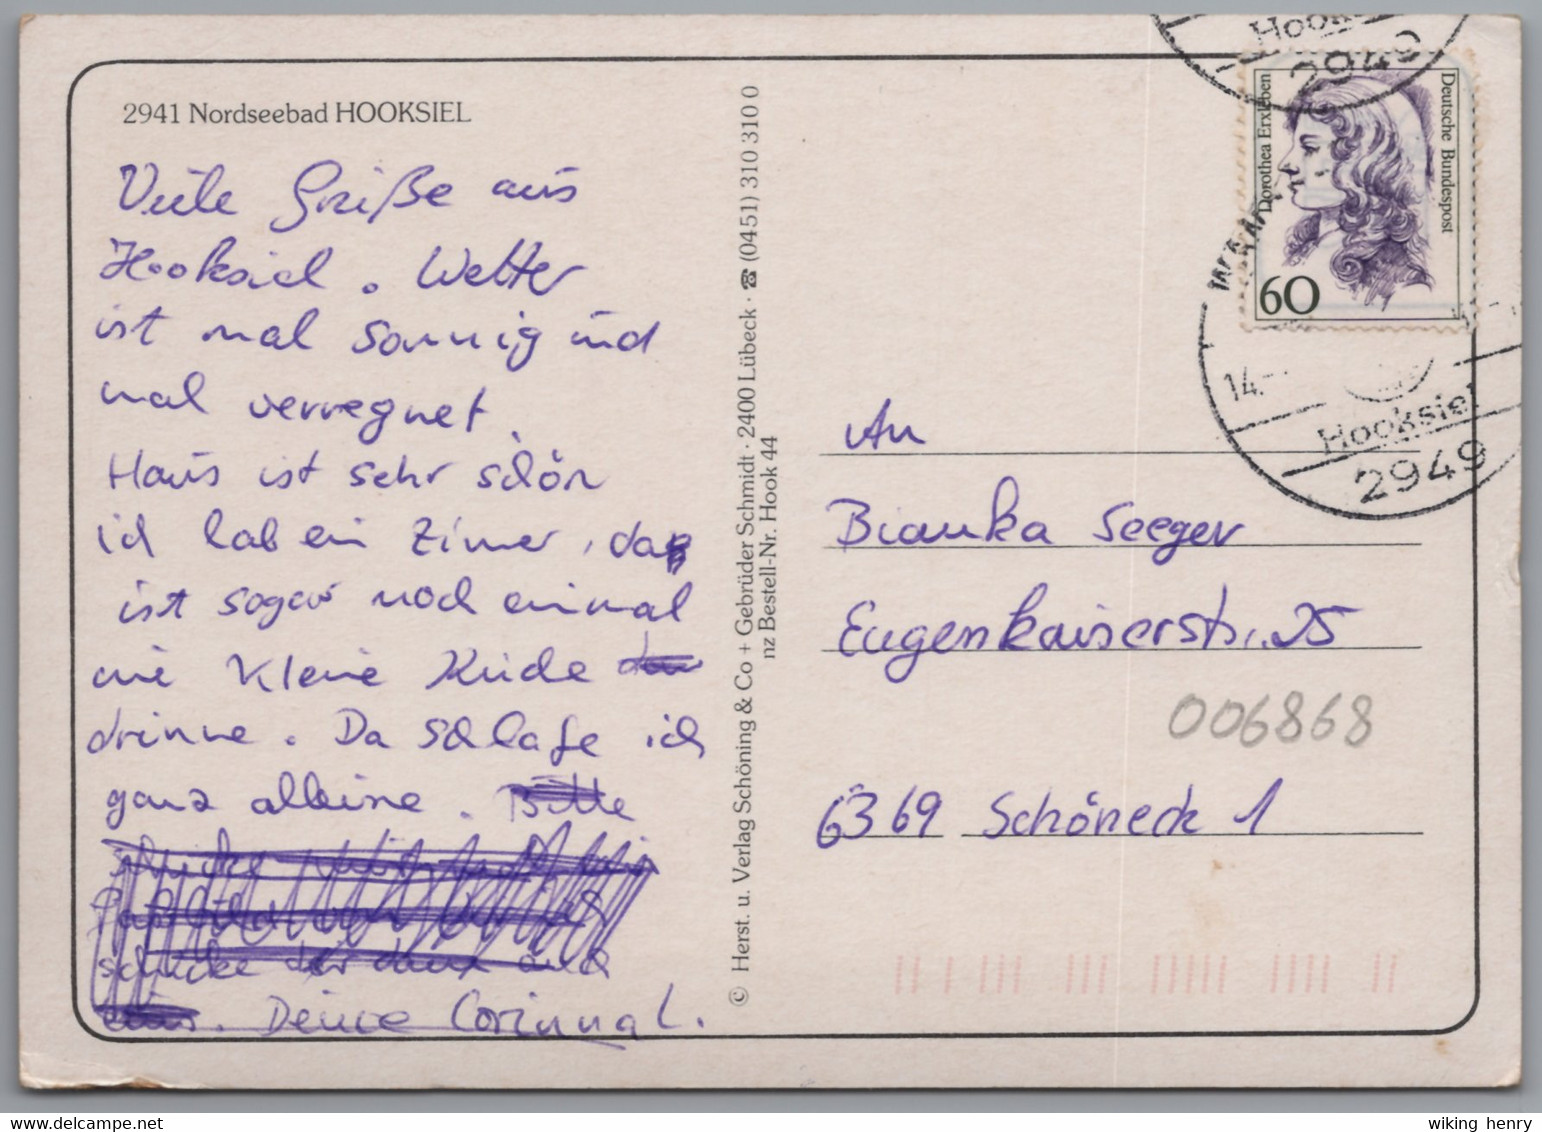 2941 Nordseebad HOOKSIEL
Viele Grüße aus
Hooksiel. Wetter
ist mal sonnig und
mal verregnet.
Haus ist sehr schön
ich hab ein Zimer, das
ist sogar noch einmal
wie kleine Küche
drinne. Da schlafe ich
ganz alleine. Bitte
schicke
schicke dir dann auch
eins. Deine Corinna L.
© Herst. u. Verlag Schöning & Co + Gebrüder Schmidt · 2400 Lübeck · ☎ (0451) 310 310 0
nz Bestell-Nr. Hook 44
Hooksiel
2949
Deutsche Bundespost
Dorothea Erxleben
60
14.
Hooksiel
2949
An
Bianka Seeger
Eugenkaiserstr. 25
006868
6369 Schöneck 1
wiking henry